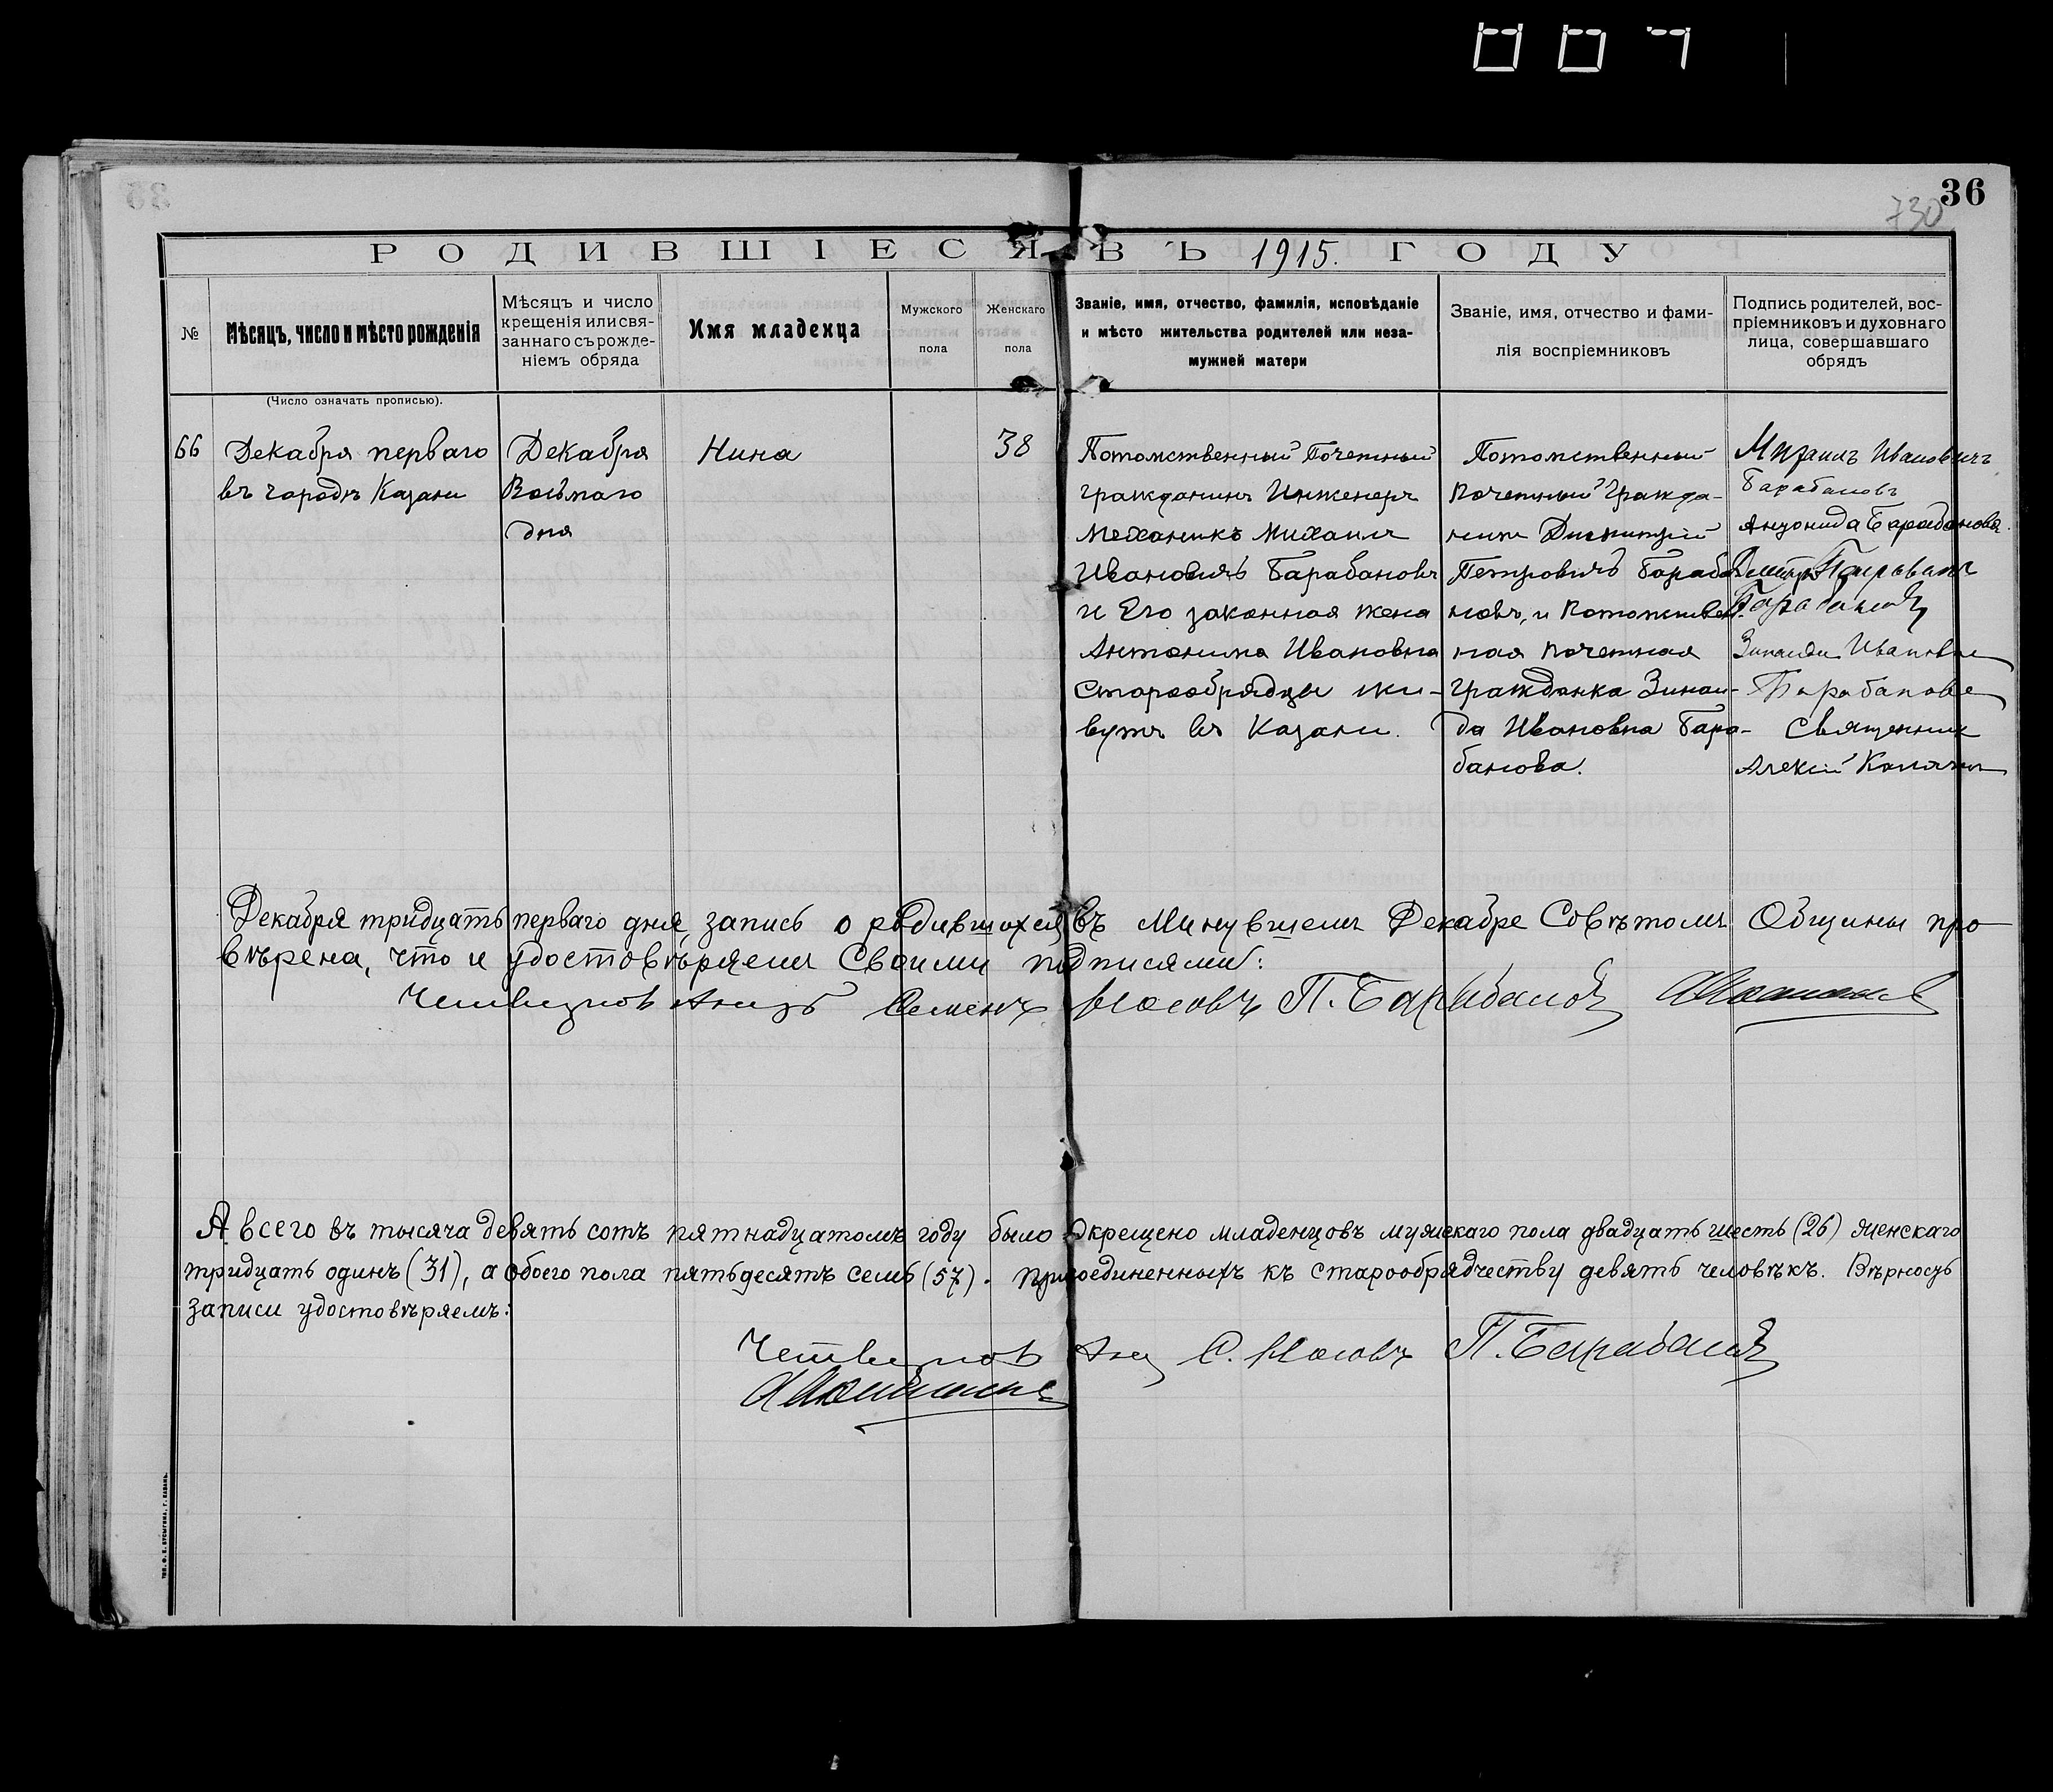 007
36
730
РОДИВШІЕСЯ ВЪ 1915. ГОДУ
№
Мѣсяцъ, число и мѣсто рожденія
Мѣсяцъ и число
крещенія или свя-
заннаго съ рожде-
ніемъ обряда
Имя младенца
Мужского
пола
Женскаго
пола
Званіе, имя, отчество, фамилія, исповѣданіе
и мѣсто жительства родителей или неза-
мужней матери
Званіе, имя, отчество и фами-
лія воспріемниковъ
Подпись родителей, вос-
пріемниковъ и духовнаго
лица, совершавшаго
обрядъ
(Число означать прописью).
66
Декабря перваго
въ городѣ Казани
Декабря
Восьмаго
дня
Нина
38
Потомственный Почетный
гражданинъ Инженеръ
Механикъ Михаилъ
Ивановичъ Барабановъ
и Его законная жена
Антонина Ивановна
Старообрядцы жи-
вутъ въ Казани.
Потомственный
Почетный Гражда-
нинъ Димитрій
Петровичъ Бараба-
новъ, и Потомствен-
ная Почетная
гражданка Зинаи-
да Ивановна Бара-
банова.
Михаилъ Ивановичъ
Барабановъ
Антонида Барабанова.
Дмитрій Петровичъ
Барабановъ
Зинаида Ивановна
Барабанова
Священникъ
Алексій
Декабря тридцать перваго дня, запись о родившихся въ Минувшемъ Декабре Совѣтомъ Общины про-
вѣрена, что и удостовѣряемъ Своими подписями:
Семенъ Носовъ П. Барабановъ
А всего въ тысяча девять сотъ пятнадцатомъ году было окрещено младенцовъ мужскаго пола двадцать шесть (26) женскаго
тридцать одинъ (31), а обоего пола пятьдесятъ семь (57). присоединенныхъ къ старообрядчеству девять человѣкъ. Вѣрность
записи удостовѣряемъ:
С. Носовъ П. Барабановъ
ТИП. Ф. П. Г. КАЗАНЬ.